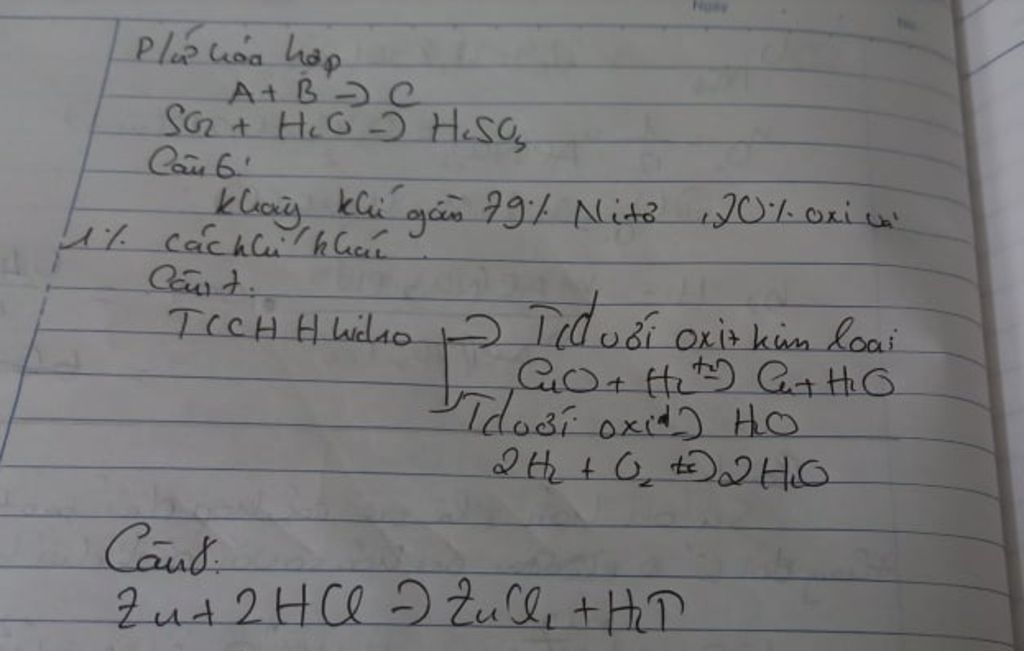 P/ứ hóa hợp
A + B → C
SO2 + H2O → H2SO3
Câu 6:
không khí gồm 79% Nitơ, 20% oxi và
1% các khí khác.
Câu 7:
TCHH Hidro → Td với oxit kim loại
CuO + H2 t°→ Cu + H2O
→ Td với oxi → H2O
2H2 + O2 t°→ 2H2O
Câu 8:
Zn + 2HCl → ZnCl2 + H2↑